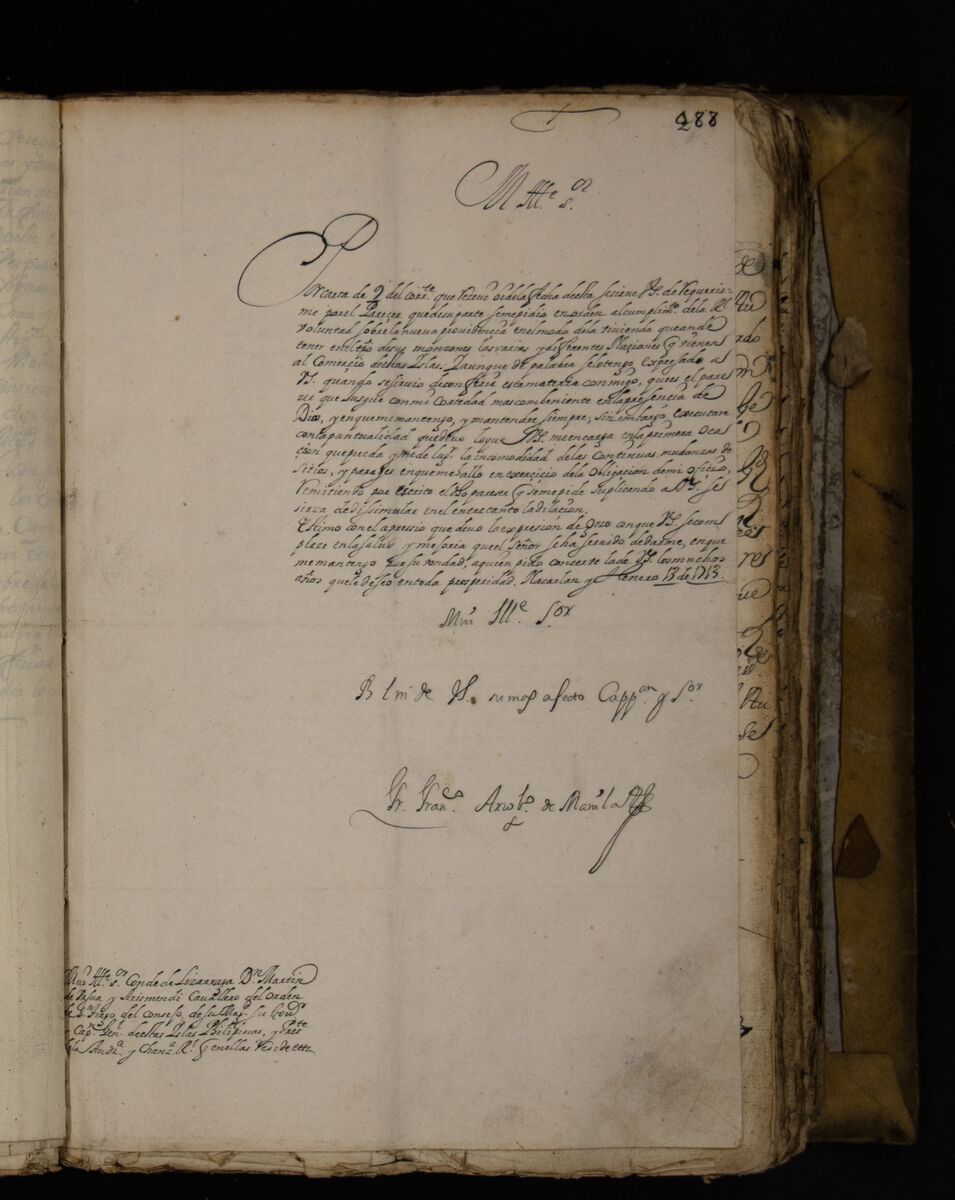 188
M Ill.e s.or
Por carta de 9 del corr.te que Recevi oi dela fecha desta se sirve V.S. de Requerir=
me por el Parecer que de su parte se me pidio en orden al cumplim.to de la R.l
Voluntad sobre la nueva providencia en el modo de la vivienda que an de
tener en el t.po de sus monzones las varias y diferentes Naciones q vienen
al Comercio destas Islas. Y aunque de palabra se lo tengo expresado a
V.S. quando se sirvio de conferir esta materia conmigo, que es el pare
cer que Jusgue con mi cortedad mas combeniente en la presencia de
Dios, y en que me mantengo, y mantendre siempre; sin embargo executare
con la puntualidad que devo lo que V.S. me encarga en la primera oca
cion que pueda y me de lug.r la incomodidad de las continuas mudanzas de
sitios, y parajes en que me hallo en exercicio de la Obligacion de mi oficio,
Remitiendo por escrito el dho pareser q se me pide suplicando a V.S. se
sirva de dissimular en el entretanto la dilacion.
Estimo con el apressio que devo la expresion de Gozo con que V.S. se com
plaze en la salud y mejoria que el Señor se ha servido de darme, en que
me mantengo por su vondad, a quien pido conserve la de V.S. los muchos
años que le deseo en toda prosperidad. Nacarlan y Henero 13 de 1713.
Mui Ill.e S.or
B l m de V.S. su mas afecto Capp.on y S.or
Fr. Fran.co Arzob.po de Manila
Mui Ill.e s.or Conde de Lizarraga D.n Martin
de Ursua y Arismendi Cavallero del Orden
de S.n Tiago del Consejo de su Mag.d su Gov.or
y Cap.n Gen.l de estas Islas Philipinas, y Pres.te
de la Aud.a y Chanz.a R.l q en ellas Reside etta